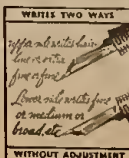 WRITES TWO WAYS
Upper nib writes hair
line or extra
fine or fine
Lower nib writes fine
or medium or
broad, etc
WITHOUT ADJUSTMENT